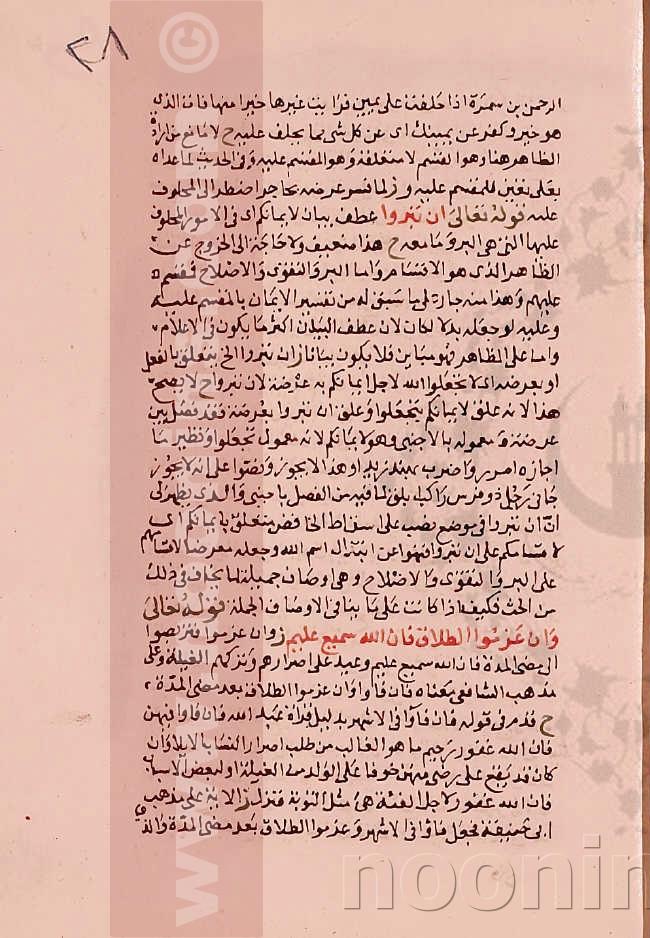 ٢٨
الرحمن بن سمرة اذا حلفت على يمين فرايت غيرها خيرا منها فات الذي
هو خير وكفر عن يمينك اى عن كل شى مما يحلف عليه ح لا مانع من ارادة
الظاهر هنا وهو القسم لا متعلقه وهو المقسم عليه وفى الحديث لما عداه
بعلى تعين للمقسم عليه و ز لما فسر عرضه بحاجزا اضطر الى المحلوف
عليه قوله تعالى ان تبروا عطف بيان لايمانكم اى فى الامور المحلوف
عليها التى هى البر وما معه ح هذا ضعيف ولا حاجة الى الخروج عن
الظاهر الذى هو الاقسام واما البر والتقوى والاصلاح فمقسم
عليهم وهذا منه جار على ما سبق له من تفسير الايمان بالمقسم عليه
وعليه لو جعله بدلا لكان لان عطف البيان اكثر ما يكون فى الاعلام
واما على الظاهر فهو مباين فلا يكون بيانا ز ان تبروا الخ يتعلق بالفعل
او بعرضة اى لا تجعلوا الله لاجل ايمانكم به عرضة لان تبروا ح لا يصح
هذا لانه علق لايمانكم بتجعلوا وعلق ان تبروا بعرضة فقد فصل بين
عرضة ومعموله بالاجنبى وهو لايمانكم لانه معمول تجعلوا ونظير ما
اجازه امرر واضرب بهند زيدا وهذا لا يجوز ونصوا على انه لا يجوز
جانى رجل ذو فرس راكب ابلق لما فيه من الفصل باجنبى والذى يظهر لى
ان ان تبروا فى موضع نصب على اسقاط الخافض متعلق بايمانكم اى
لاقسامكم على ان تبروا فنهوا عن ابتذال اسم الله وجعله معرضا لاقسامهم
على البر والتقوى والاصلاح وهى اوصاف جميلة لما يخاف فى ذلك
من الحنث فكيف اذا كانت على ما ينافى الاوصاف الجملة قوله تعالى
وان عزموا الطلاق فان الله سميع عليم ز وان عزموا فتربصوا
الى مضى المدة فان الله سميع عليم وعيد على اصرارهم وتركهم الفيئة وعلى
مذهب الشافعى معناه فان فاوا وان عزموا الطلاق بعد مضى المدة
ح قدم فى قوله فان فاوا فى الاشهر بدليل قراة عبد الله فان فاوا فيهن
فان الله غفور رحيم ما هو الغالب من طلب اضرار النسا بالايلا وان
كان قد يقع على رضى منهن خوفا على الولد من الغيلة او لبعض الاسباب
فان الله غفور لاجل الفيئة هى مثل التوبة فتنزل ز الاية على مذهب
ابى حنيفة فجعل فاوا فى الاشهر وعزموا الطلاق بعد مضى المدة والذى
©
www.
noonin